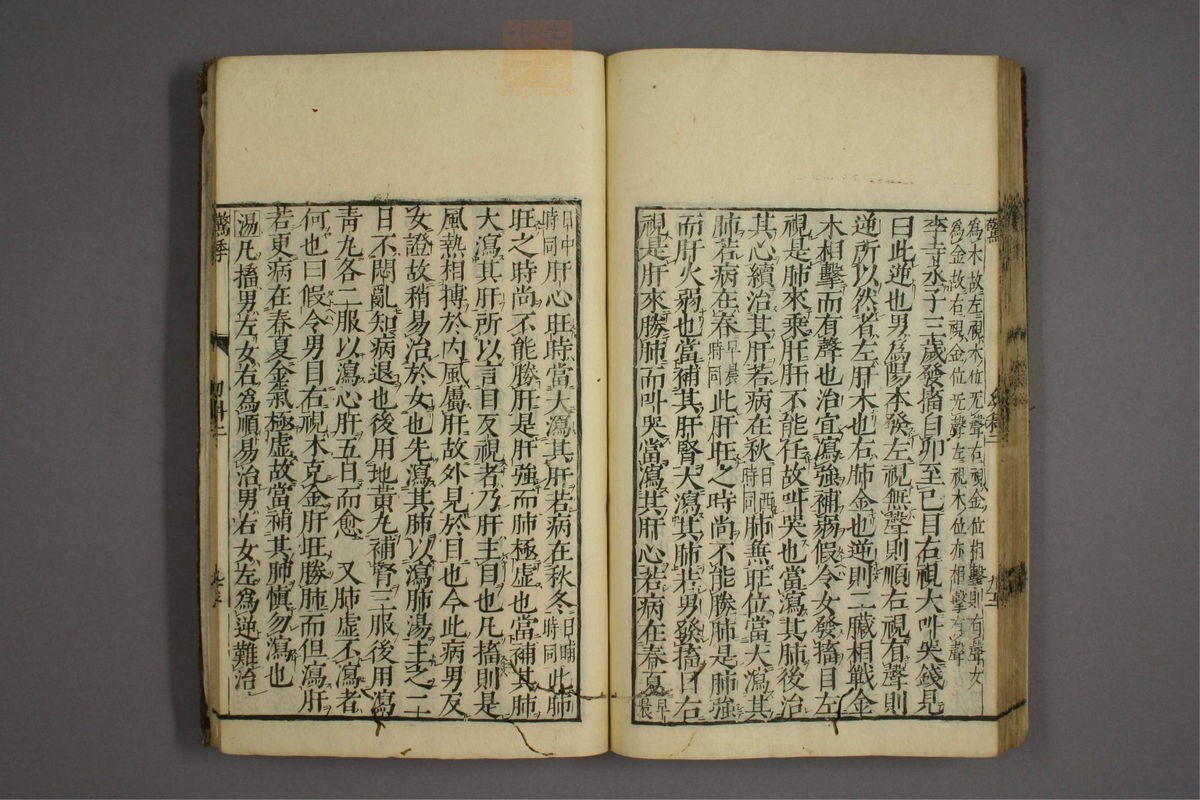 爲木故左視木位无聲右視金位相擊則有聲女
爲金故右視金位无聲左視木位亦相擊有聲
李寺丞子三歲發搐自卯至巳目右視大叫哭錢見
曰此逆也男爲陽本發左視無聲則順右視有聲則
逆所以然者左肝木也右肺金也逆則二臟相戰金
木相擊而有聲也治宜瀉強補弱假令女發搐目左
視是肺來乘肝肝不能任故叫哭也當瀉其肺後治
其心續治其肝若病在秋日西時同肺兼旺位當大瀉其
肺若病在春早晨時同此肝旺之時尚不能勝肺是肺強
而肝火弱也當補其肝腎大瀉其肺若男發搐目右
視是肝來勝肺而叫哭當瀉其肝心若病在春夏早晨
日中時同肝心旺時當大瀉其肝若病在秋冬日晡時同此肺
旺之時尚不能勝肝是肝強而肺極虚也當補其肺
大瀉其肝所以言目反視者乃肝主目也凡搐則是
風熱相搏於內風屬肝故外見於目也今此病男反
女證故稍易治於女也先瀉其肺以瀉肺湯主之二
日不悶亂知病退也後用地黃丸補腎三服後用瀉
靑丸各二服以瀉心肝五日而愈 又肺虚不瀉者
何也曰假令男目右視木克金肝旺勝肺而但瀉肝
若更病在春夏金氣極虛故當補其肺愼勿瀉也
湯凡搐男左女右爲順易治男右女左爲逆難治